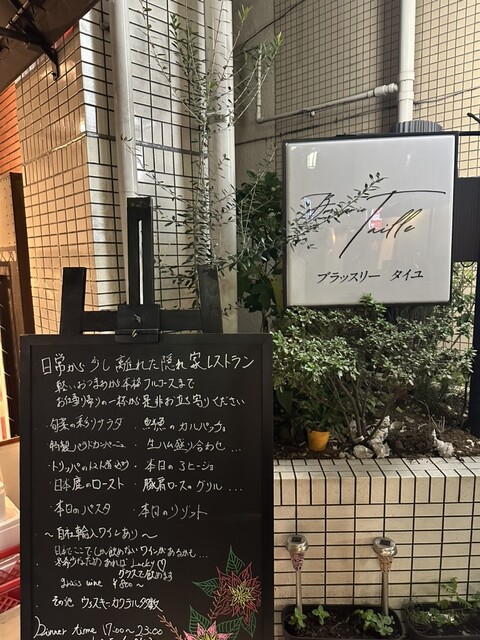 Taille
ブラッスリー タイユ
日常から少し離れた隠れ家レストラン
軽いおつまみから本格フルコースまで
お仕事帰りの一杯から是非お立ち寄りください
・旬菜の彩りサラダ ・鮮魚のカルパッチョ
・特製パテドカンパーニュ ・生ハム盛り合わせ...
・トリッパのトマト煮込み ・本日のアヒージョ
・日本鹿のロースト ・豚肩ロースのグリル...
・本日のパスタ ・本日のリゾット
〜自社輸入ワインあり〜
日本でここでしか飲めないワインがあるかも...
あれば Lucky♡
グラスで飲める
glass wine ¥800〜
その他 ウイスキー カクテル 多数
Dinner time 17:00〜23:00